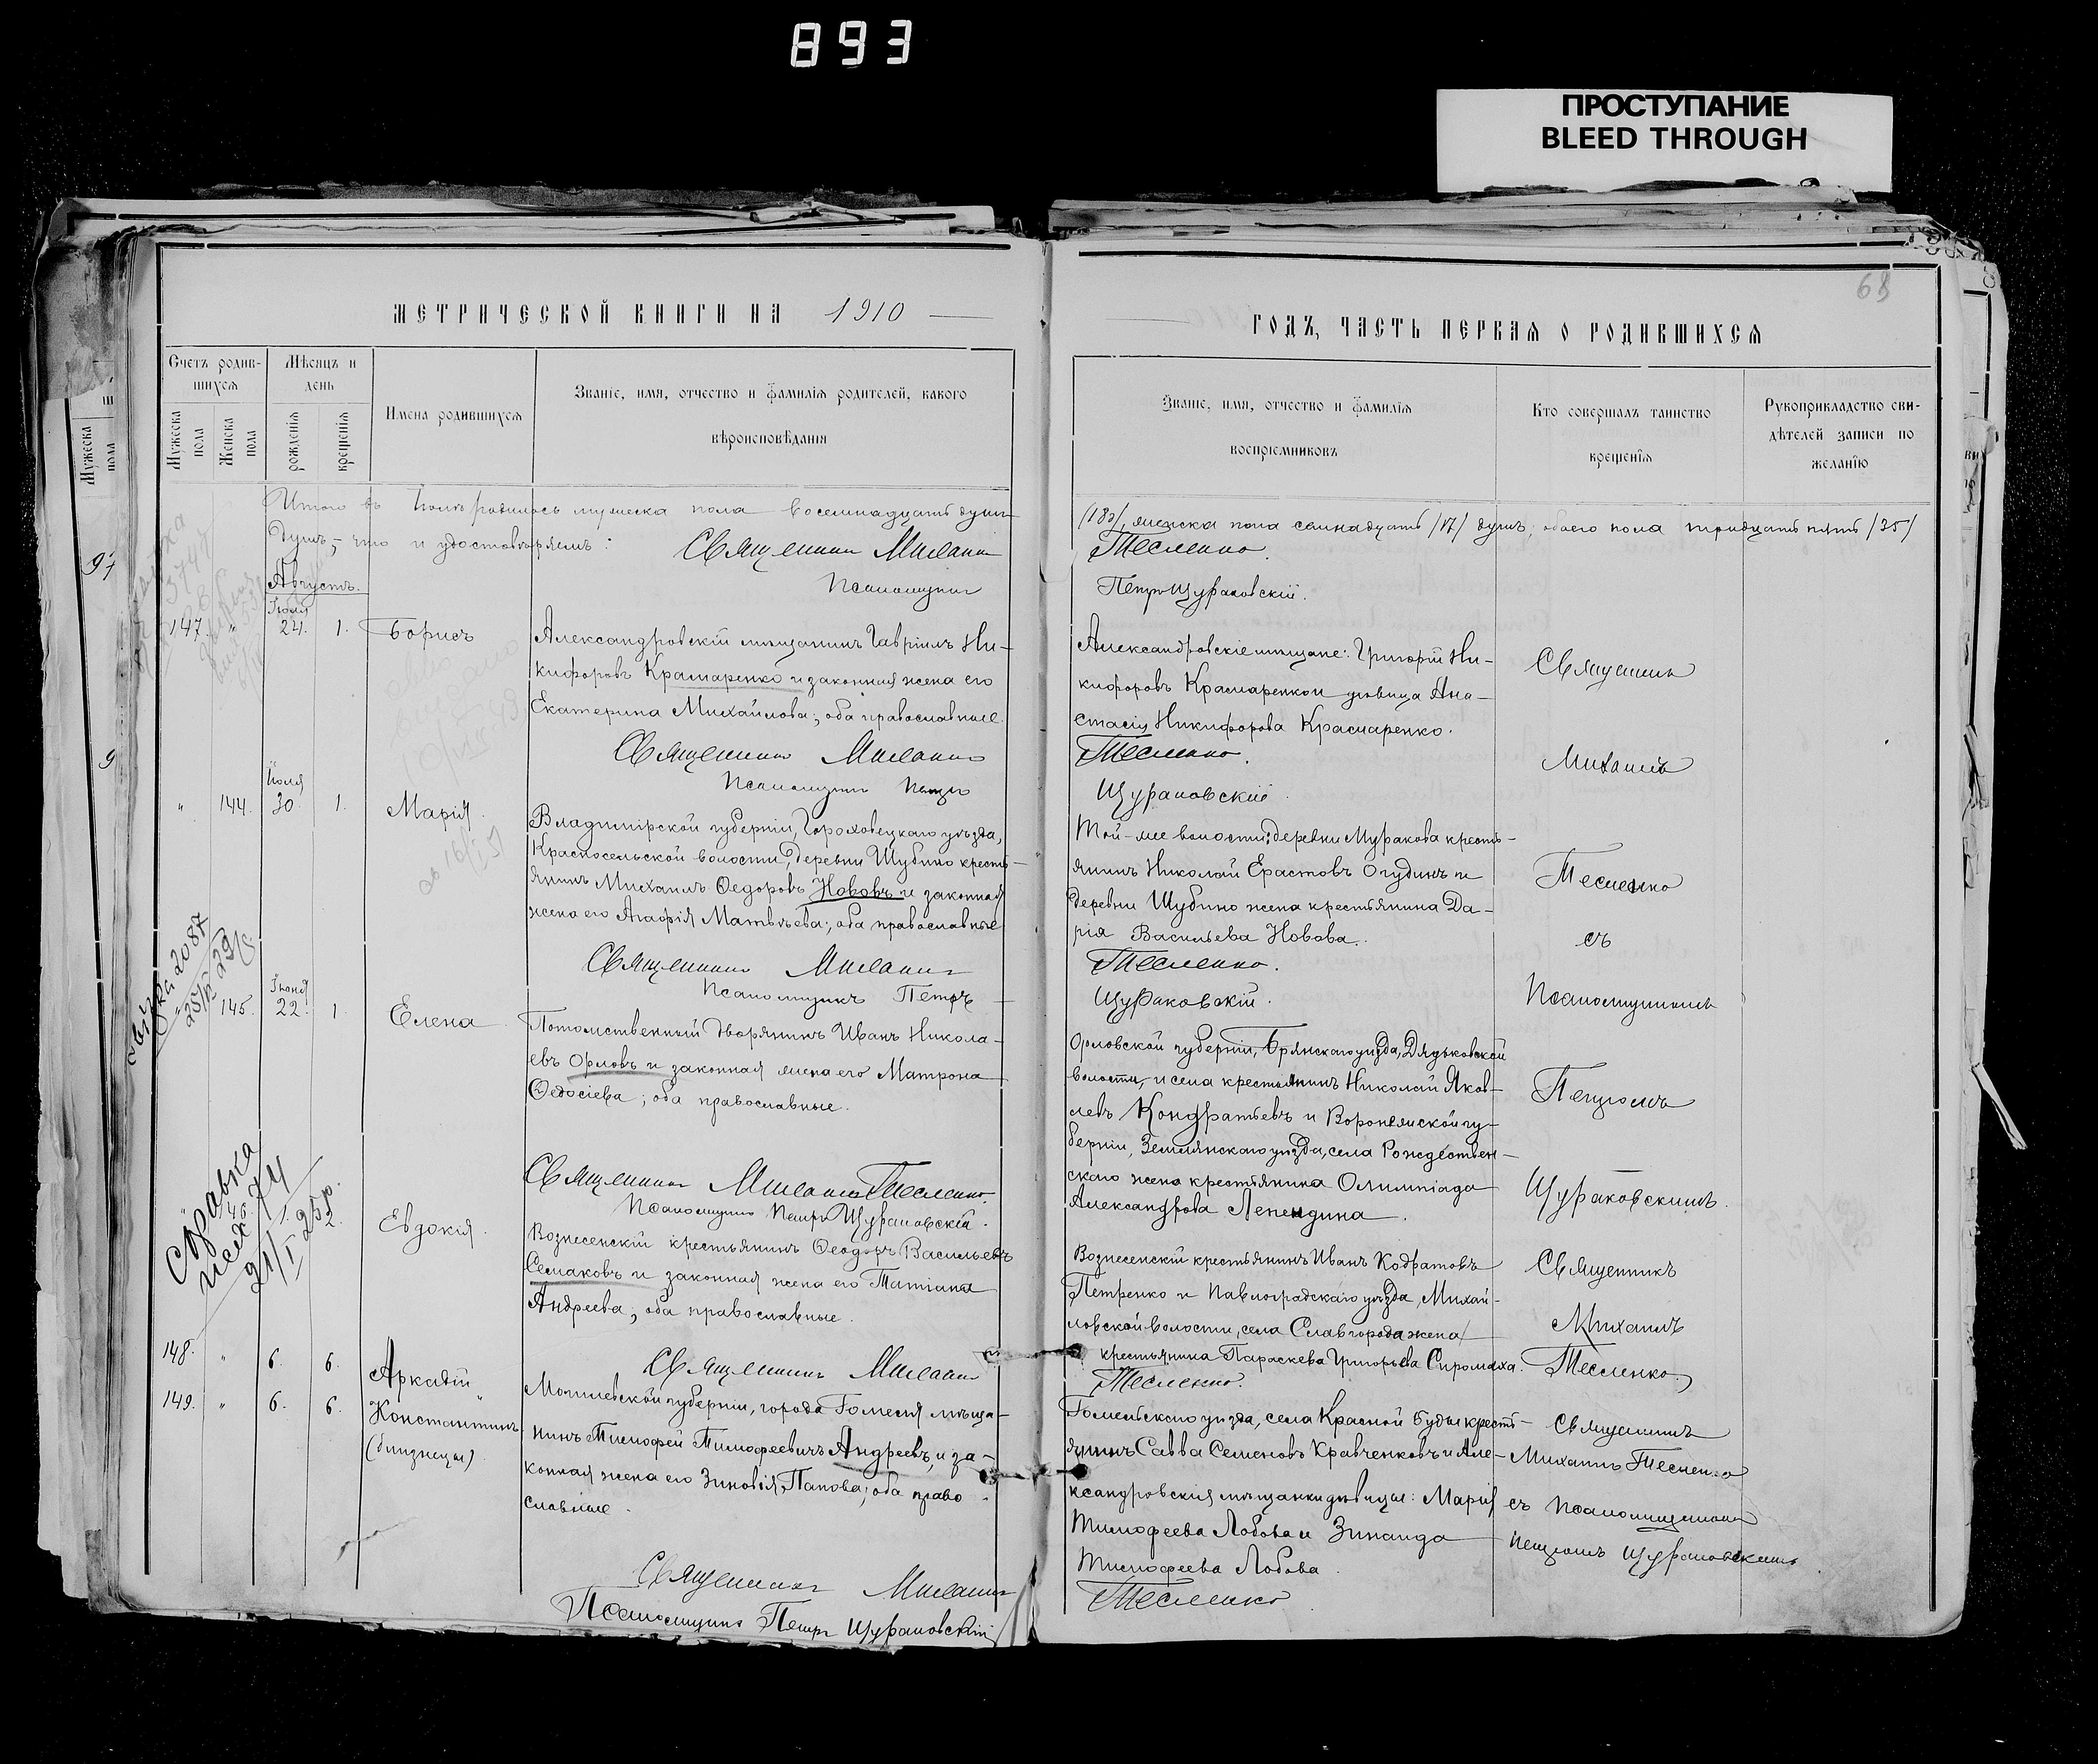 893
ПРОСТУПАНИЕ
BLEED THROUGH
68
МЕТРИЧЕСКОЙ КНИГИ НА 1910
ГОДЪ, ЧАСТЬ ПЕРВАЯ О РОДИВШИХСЯ
Счетъ родив-
шихся
Мужеска пола
Женска пола
Мѣсяцъ и
день
рожденія
крещенія
Имена родившихся
Званіе, имя, отчество и фамилія родителей, какого
вѣроисповѣданія
Званіе, имя, отчество и фамилія
воспріемниковъ
Кто совершалъ таинство
крещенія
Рукоприкладство сви-
дѣтелей записи по
желанію
Итого въ родилось мужеска пола восемнадцать душъ
(18), женска пола семнадцать (17) душъ, обоего пола тридцать пять (35)
душъ, что и удостовѣряемъ:
Священникъ Михаилъ
Тесленко.
Псаломщикъ
Петръ Щураковскій.
Августъ.
147. " Іюля 24. 1. Борисъ
Александровскій мѣщанинъ Гавріилъ Ни-
кифоровъ Крамаренко и законная жена его
Екатерина Михайлова; оба православные.
Александровскіе мѣщане: Григорій Ни-
кифоровъ Крамаренко и дѣвица Ана-
стасія Никифорова Крамаренко.
Священникъ Михаилъ
Тесленко.
Псаломщикъ Петръ
Щураковскій.
" 144. Іюля 30. 1. Марія.
Владимірской губерніи, Гороховецкаго уѣзда,
Красносельской волости, деревни Шубино кресть-
янинъ Михаилъ Ѳедоровъ Нововъ и законная
жена его Агафія Матвѣева; оба православные
Той-же волости: деревни Муракова кресть-
янинъ Николай Ерастовъ Огудинъ и
деревни Шубино жена крестьянина Да-
рія Васильева Новова.
Священникъ Михаилъ
Тесленко.
Псаломщикъ Петръ
Щураковскій.
" 145. Іюня 22. 1. Елена
Потомственный дворянинъ Иванъ Никола-
евъ Орловъ и законная жена его Матрона
Ѳедосіева; оба православные.
Орловской губерніи, Брянскаго уѣзда, Дядьковской
волости, и села крестьянинъ Николай Яков-
левъ Кондратьевъ и Воронежской гу-
берніи, Землянскаго уѣзда, села Рождествен-
скаго жена крестьянина Олимпіада
Александрова
Священникъ Михаилъ Тесленко.
Псаломщикъ Петръ Щураковскій.
Священникъ
Михаилъ
Тесленко
съ
Псаломщикомъ
Петромъ
Щураковскимъ.
Справка
21/I 25 р.
" 1. Евдокія.
Вознесенскій крестьянинъ Ѳеодоръ Васильевъ
Семаковъ и законная жена его Татіана
Андреева; оба православные.
Вознесенскій крестьянинъ Иванъ Кодратовъ
Петренко и Павлоградскаго уѣзда, Михай-
ловской волости, села Славгорода жена
крестьянина Параскева Григорьева Сиромаха.
Священникъ
Михаилъ
Тесленко
Священникъ Михаилъ
Тесленко.
148. " 6. 6. Аркадій
149. " 6. 6. Константинъ
(близнецы)
Могилевской губерніи, города Гомеля мѣща-
нинъ Тимофей Тимофеевичъ Андреевъ, и за-
конная жена его Зиновія Папова; оба право-
славные.
Гомельскаго уѣзда, села Красной Буды кресть-
янинъ Савва Семеновъ Кравченковъ и Але-
ксандровскія мѣщанки дѣвицы: Марія
Тимофеева Лобова и Зинаида
Тимофеева Лобова.
Священникъ
Михаилъ Тесленко
съ Псаломщикомъ
Петромъ Щураковскимъ
Священникъ Михаилъ
Тесленко
Псаломщикъ Петръ Щураковскій